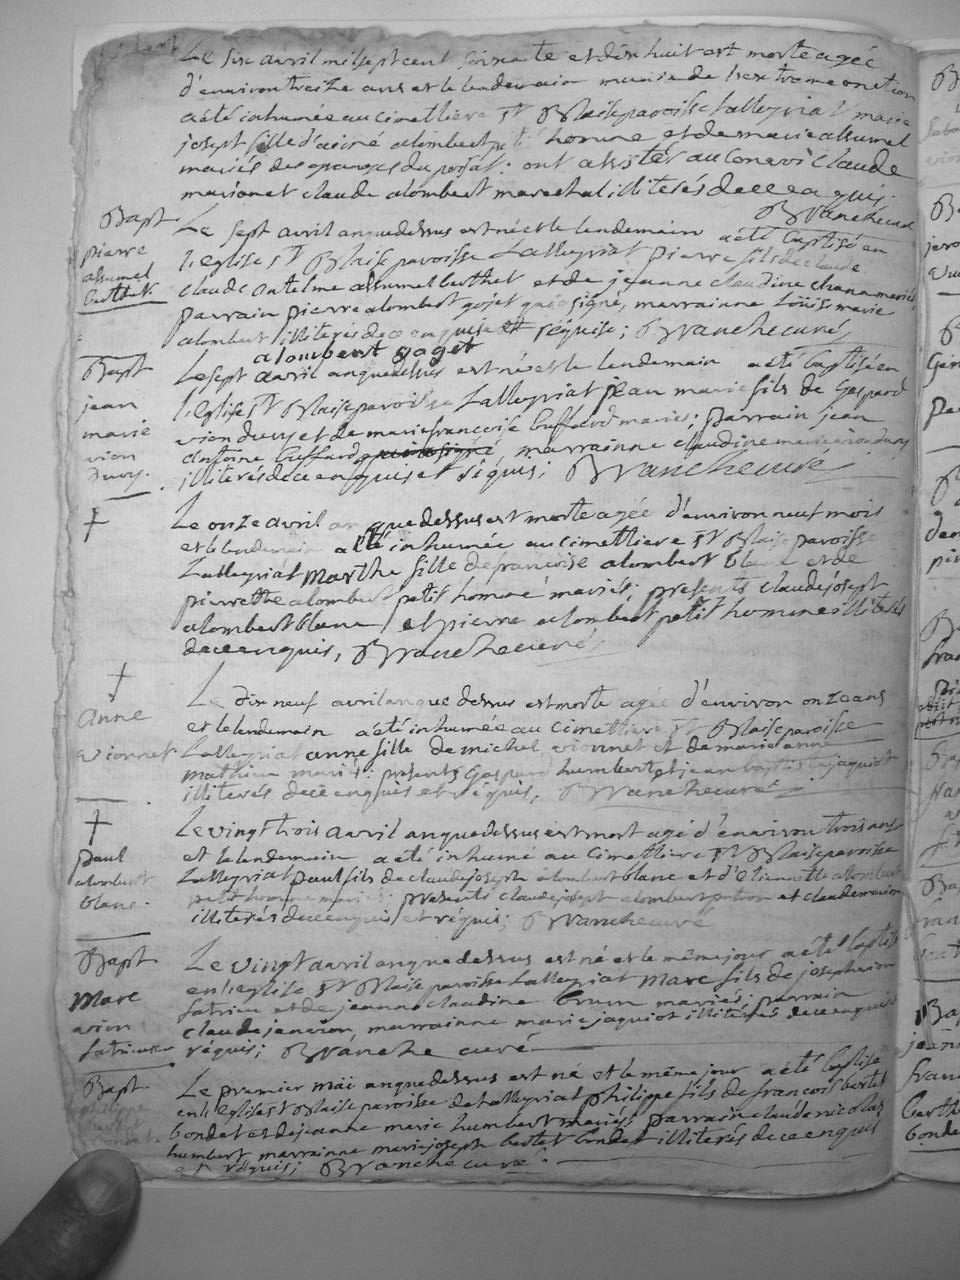 Le six avril mil sept cent soixante et dix huit est morte agée
d'environ treize ans et le lendemain munie de l'extreme onction
a été inhumée au cimettiere St Blaise paroisse Lalleyriat marie
josept fille d'aimé alombert petit homme et de marie assumel
mariés des granges du poisat: ont assisté au convoi claude
marionet claude alombert marechal illiterés de ce enquis.
Branche curé
Bapt
pierre
assumel
berthet
Le sept avril an que dessus est né et le lendemain a été baptisé en
l'eglise St Blaise paroisse Lalleyriat pierre fils de claude
claude antelme assumel berthet et de jeanne claudine mariés
parrain pierre alombert gojet qui a signé, marrainne Louise marie
alombert illiterés de ce enquise et requise; Branche curé
alombert gojet
Bapt
jean
marie
vion
dury.
Le sept avril an que dessus est né et le lendemain a été baptisé en
l'eglise St Blaise paroisse Lalleyriat jean marie fils de Gaspard
vion dury et de marie francoise buffard mariés; parrain jean
antoine buffard qui a signé, marrainne claudine marie vion dury
illiterés de ce enquis et requis; Branche curé
Le onze avril an que dessus est morte agée d'environ neuf mois
et le lendemain a été inhumée au cimettiere St Blaise paroisse
Lalleyriat Marthe fille de francoise alombert blanc et de
pierrette alombert petit homme mariés; presents claude josept
alombert blanc et pierre alombert petit homme illiterés
de ce enquis, Branche curé
anne
vionnet
Le dix neuf avril an que dessus est morte agée d'environ onze ans
et le lendemain a été inhumée au cimettiere St Blaise paroisse
Lalleyriat anne fille de michel vionnet et de marie anne
mathieu mariés: presents Gaspard humbert et jean baptiste jaquiot
illiterés de ce enquis et requis, Branche curé
paul
alombert
blanc.
Le vingt trois avril an que dessus est mort agé d'environ trois ans
et le lendemain a été inhumé au cimettiere St Blaise paroisse
Lalleyriat paul fils de claude joseph alombert blanc et d'etiennette alombert
petit homme mariés: presents claude josept alombert et claude marion
illiterés de ce enquis et requis; Branche curé
Bapt
Marc
vion
Le vingt avril an que dessus est né et le même jour a été baptisé
en l'eglise St Blaise paroisse Lalleyriat Marc fils de joseph vion
et de jeanne claudine brun mariés; parrain
claude jean vion, marrainne marie jaquiot illiterés de ce enquis
requis; Branche curé
Bapt
philippe
Le premier mai an que dessus est né et le même jour a été baptisé
en l'eglise St Blaise paroisse de Lalleyriat philippe fils de francois bertet
bondet et de jeanne marie humbert mariés parrain claude nicolas
humbert marrainne marie joseph bertet bondet illiterés de ce enquis
et requis; Branche curé